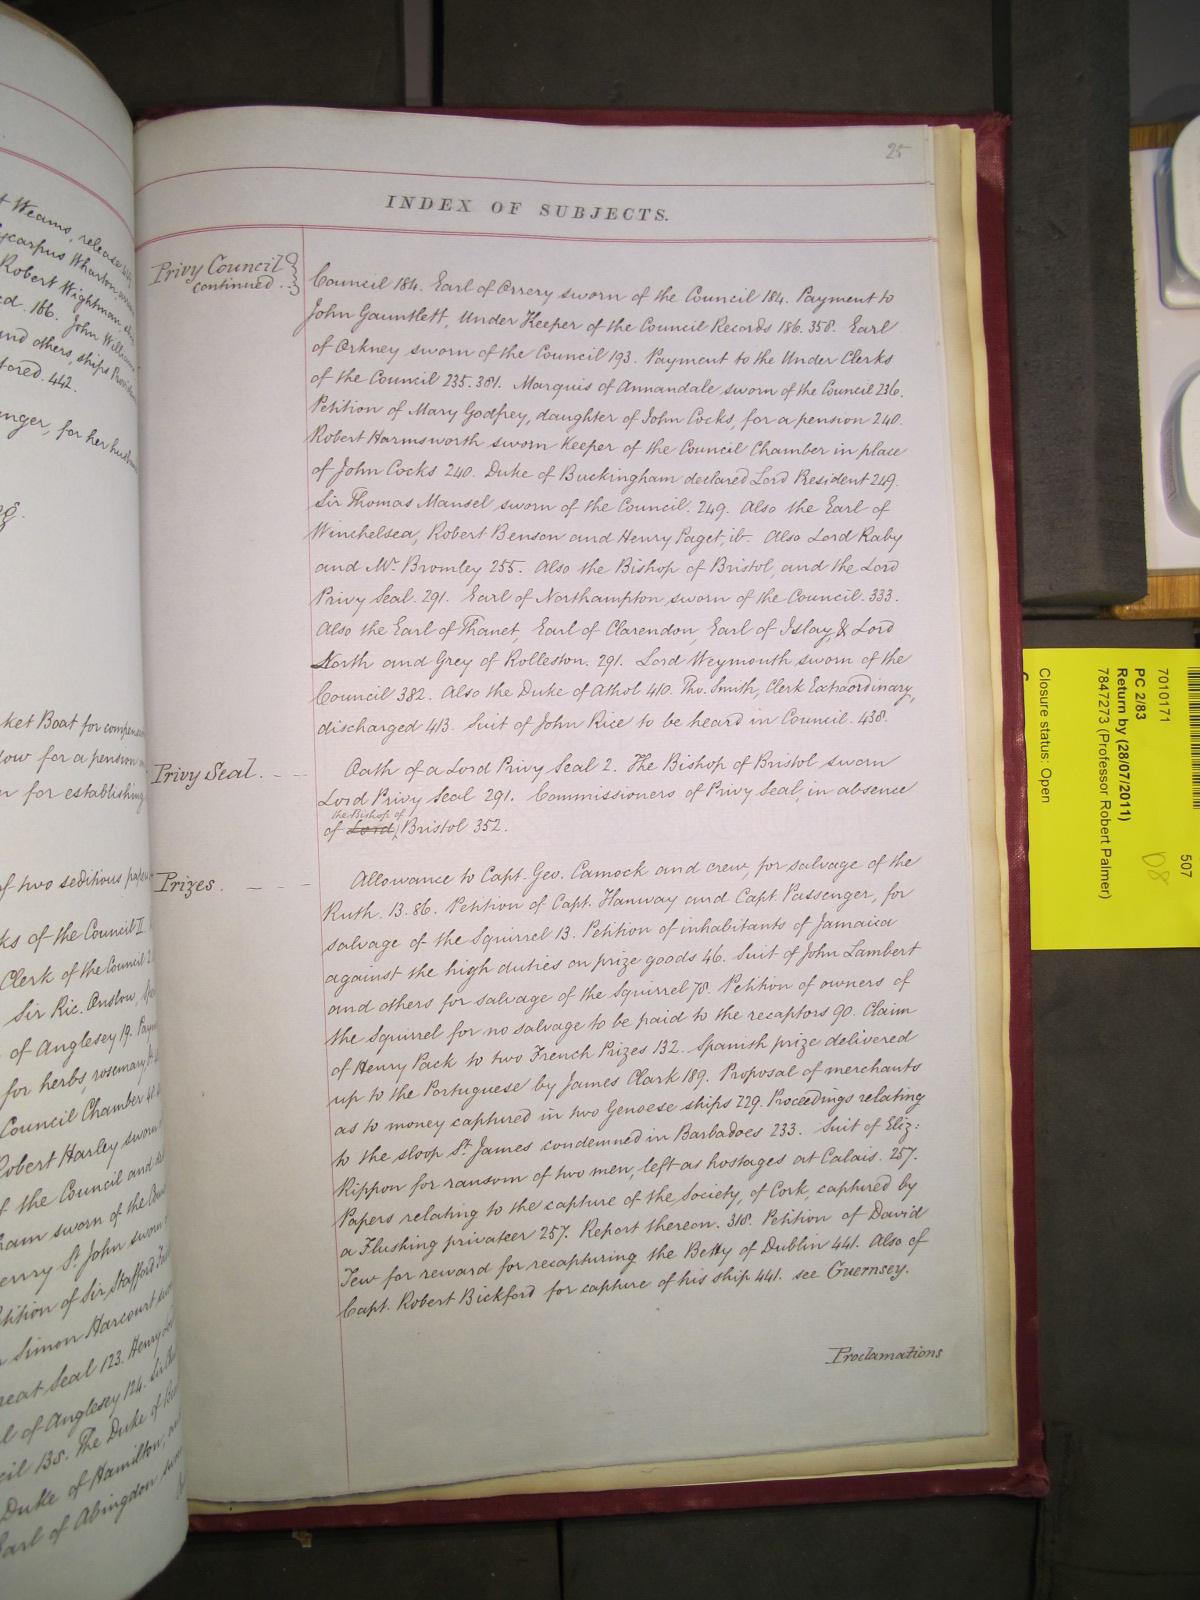 25
INDEX OF SUBJECTS.
Privy Council
continued
Council 184. Earl of Orrery sworn of the Council 184. Payment to
John Gauntlett, Under Keeper of the Council Records 186. 358. Earl
of Orkney sworn of the Council 193. Payment to the Under Clerks
of the Council 235. 381. Marquis of Annandale sworn of the Council 236.
Petition of Mary Godfrey, daughter of John Cocks, for a pension 240.
Robert Harmsworth sworn Keeper of the Council Chamber in place
of John Cocks 240. Duke of Buckingham declared Lord President 249.
Sir Thomas Mansel sworn of the Council. 249. Also the Earl of
Winchelsea, Robert Benson and Henry Paget, ib. Also Lord Raby
and Mr. Bromley 255. Also the Bishop of Bristol, and the Lord
Privy Seal. 291. Earl of Northampton sworn of the Council. 333.
Also the Earl of Thanet, Earl of Clarendon, Earl of Islay, & Lord
North and Grey of Rolleston. 291. Lord Weymouth sworn of the
Council 382. Also the Duke of Athol 410. Tho. Smith, Clerk Extraordinary,
discharged 413. Suit of John Rice to be heard in Council. 438.
Privy Seal. - - -
Oath of a Lord Privy Seal 2. The Bishop of Bristol sworn
Lord Privy Seal 291. Commissioners of Privy Seal, in absence
the Bishop of
of Lord Bristol 352.
Prizes. - - -
Allowance to Capt. Geo. Camock and crew, for salvage of the
Ruth. 13. 86. Petition of Capt. Hanway and Capt. Passenger, for
salvage of the Squirrel 13. Petition of inhabitants of Jamaica
against the high duties on prize goods 46. Suit of John Lambert
and others for salvage of the Squirrel 78. Petition of owners of
the Squirrel for no salvage to be paid to the recaptors 90. Claim
of Henry Pack to two French Prizes 132. Spanish prize delivered
up to the Portuguese by James Clark 189. Proposal of merchants
as to money captured in two Genoese ships 229. Proceedings relating
to the sloop St. James condemned in Barbadoes 233. Suit of Eliz:
Rippon for ransom of two men, left as hostages at Calais. 257.
Papers relating to the capture of the Society, of Cork, captured by
a Flushing privateer 257. Report thereon. 318. Petition of David
Tew for reward for recapturing the Betty of Dublin 441. Also of
Capt. Robert Bickford for capture of his ship 441. see Guernsey.
Proclamations
t Weams, release
ycarpus Wharton
Robert Wightman
ed. 186. John
and others, ships
tored. 442.
nger, for her
ket Boat for
low for a pension
n for establishing
of two seditious
ks of the Council
Clerk of the Council
Sir Ric. Onslow,
of Anglesey 19.
for herbs, rosemary
Council Chamber
Robert Harley sworn
f the Council and
ham sworn of the
enry St. John sworn
etition of Sir Stafford
Simon Harcourt
reat Seal 123. Henry
l of Anglesey 124. Sir
cil 135. The Duke of
Duke of Hamilton,
Earl of Abingdon
7010171
507
PC 2/83
Return by (28/07/2011)
7847273 (Professor Robert Palmer)
D8
Closure status: Open